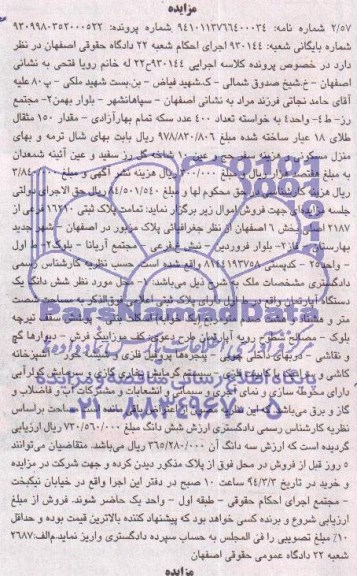 مزایده
۲/۵۷ شماره نامه: ۹۴۱۰۱۱۳۷۶۶۴۰۰۰۳۴ شماره پرونده: ۹۳۰۹۹۸۰۳۵۲۰۰۰۵۲۲
شماره بایگانی شعبه: ۹۳۰۱۴۴ اجرای احکام شعبه ۲۲ دادگاه حقوقی اصفهان در نظر
دارد در خصوص پرونده کلاسه اجرایی ۹۳۰۱۴۴ح۲۲ له خانم رویا فتحی به نشانی
اصفهان - خ.شیخ صدوق شمالی - ک.شهید فیاض - بن.بست شهید ملکی - پ۸۰ علیه
آقای حامد نجاتی فرزند مراد به نشانی اصفهان - سپاهانشهر - بلوار بهمن۲- مجتمع
رز- ط۴- واحد۴ به خواسته تعداد ۴۰۰ عدد سکه تمام بهارآزادی - مقدار ۱۵۰ مثقال
طلای ۱۸ عیار ساخته شده مبلغ ۹۷۸/۸۳۰/۸۰۶ ریال بابت بهای شال ترمه و بهای
منزل مسکونی و هزینه سفر حج و عین ۱۰ شاخه گل رز سفید و عین آئینه شمعدان
به مبلغ هفتصد هزار ریال و مبلغ ۲۰۰/۰۰۰ ریال هزینه نشر آگهی و مبلغ
ریال هزینه کارشناسی در حق محکوم لها و مبلغ ۸۴/۵۰۱/۵۴۰ ریال حق الاجرای دولتی
جلسه مزایده‌ای جهت فروش اموال زیر برگزار نماید: تمامت پلاک ثبتی ۱۶۲۹۰ فرعی از
۲۱۸۷ اصلی بخش ۱۶اصفهان از نظر جغرافیائی پلاک مزبور در اصفهان - شهر جدید
بهارستان - فاز۲- بلوار فروردین - نبش خ.فرعی - مجتمع آریانا - بلوک۲- ط اول
- واحد۲۵ - کدپستی ۸۱۴۴۱۹۳۷۵۸ واقع شده است. حسب نظریه کارشناس رسمی
دادگستری مشخصات ملک به شرح ذیل می‌باشد: - محل مورد نظر شش دانگ یک
دستگاه آپارتمان واقع در ط اول دارای پلاک ثبتی اعلامی فوق‌الذکر به مساحت شصت
بلوک - مصالح سطوح رویه آپارتمان طرح دعوی کف موزائیک فرش - دیوارها گچ
و نقاشی - دربهای داخلی چوبی - پنجره‌ها پروفیل فلزی و شیشه خور - آشپزخانه
کاشی و سرامیک با کابینت فلزی - سیستم گرمایش بخاری گازی و سرمایش کولرآبی
دارای محوطه سازی و نمای آجری و سیمانی و انشعابات و مشترکات آب و فاضلاب و
گاز و برق می‌باشد
نظریه کارشناس رسمی دادگستری ارزش شش دانگ مبلغ ۷۳۰/۵۶۰/۰۰۰ ریال ارزیابی
گردیده است که ارزش سه دانگ آن ۳۶۵/۲۸۰/۰۰۰ ریال می‌باشد. متقاضیان می‌توانند
۵ روز قبل از فروش در محل فوق از پلاک مذکور دیدن کرده و جهت شرکت در مزایده
و خرید در تاریخ ۹۴/۳/۳ ساعت ۱۰ صبح در دفتر این اجرا واقع در خیابان نیکبخت
- مجتمع اجرای احکام حقوقی - طبقه اول - واحد یک حاضر شوند. فروش از مبلغ
ارزیابی شروع و برنده کسی خواهد بود که پیشنهاد کننده بالاترین قیمت بوده و حداقل
۱۰٪ مبلغ تصویبی را فی المجلس به حساب سپرده دادگستری واریز نماید.م‌الف:۲۶۸۷
شعبه ۲۲ دادگاه عمومی حقوقی اصفهان
مزایده
ParsNamadData
پایگاه اطلاع رسانی مناقصه و مزایده
۰۲۱-۸۸۳۴۹۶۷۰-۵